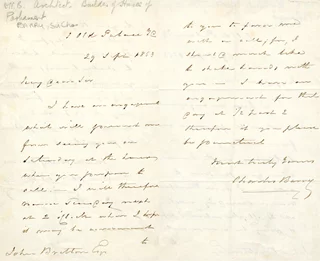 N.B. Architect. Builder of Houses of
Parliament
8 Old Palace Yd
29 1853
My dear Sir
I have an engagement
that will prevent me
from seeing you on
Saturday at the hour
when you propose to
call. I will therefore
name next
at 2 o'clock when I hope
it may be convenient
to
John Britton Esq
to you to favor me
with a call, for I
should much like
to shake hands with
you. I have an
engagement for that
day at ½ past 2
therefore if you please
be punctual
Most truly yours
Charles Barry